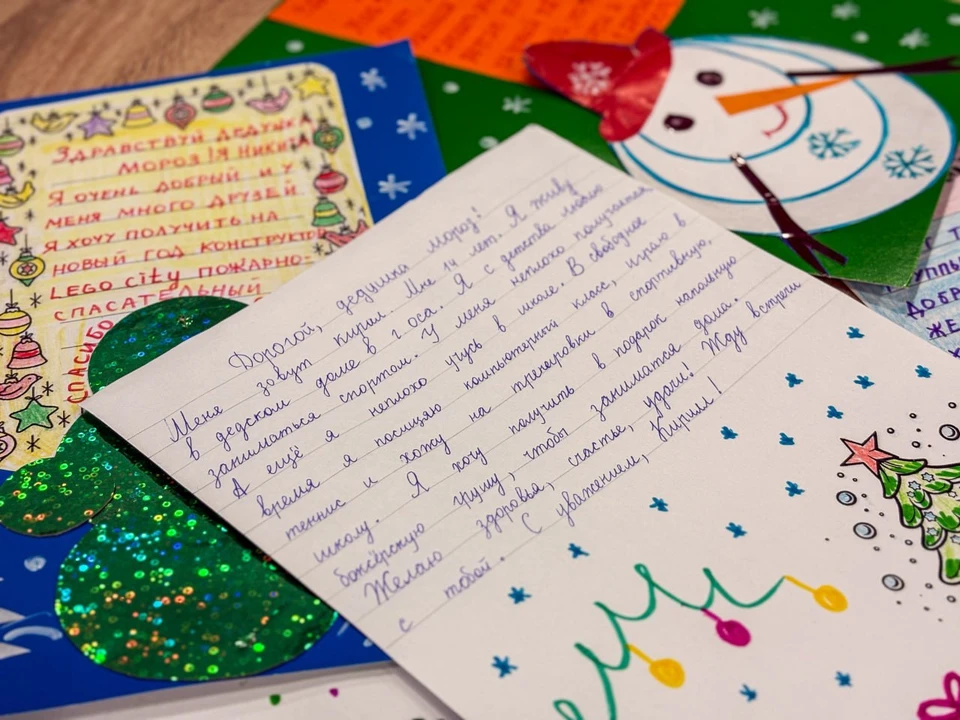 ЗДРАВСТВУЙ ДЕДУШКА
МОРОЗ! Я НИКИТА
Я ОЧЕНЬ ДОБРЫЙ И У
МЕНЯ МНОГО ДРУЗЕЙ
Я ХОЧУ ПОЛУЧИТЬ НА
НОВЫЙ ГОД КОНСТРУКТОР
LEGO city ПОЖАРНО-
СПАСАТЕЛЬНЫЙ
СПАСИБО
Дорогой, дедушка мороз!
Меня зовут Кирил. Мне 14 лет. Я живу
в дедском доме в г оса. Я с детства люблю
заниматься спортом. У меня неплохо получается
А ещё я неплохо учусь в школе. В свободное
время я посищяю компьютерный класс, играю в
теннис и хожу на тренеровки в спортивную.
школу. Я хочу получить в подарок напольную
боксёрскую грушу, чтобы заниматся дома.
Желаю здоровья, счастье, удачи! Жду встречи
с тобой. С уважением, Кирилл!
УППЫ
ДОБР
ЖЕ